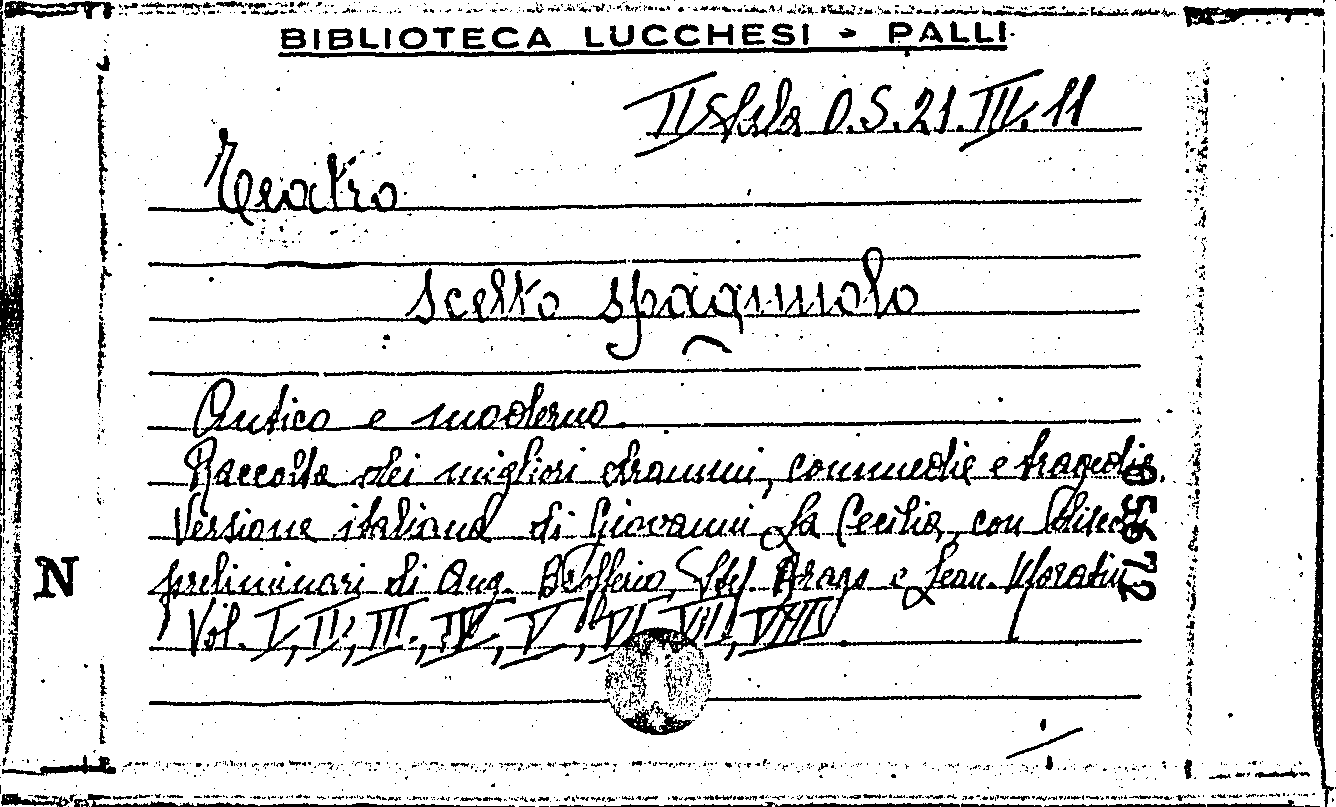 BIBLIOTECA LUCCHESI - PALLI
II Sala D.S.21.III.11
Teatro
scelto spagnuolo
Antico e moderno.
Raccolta dei migliori drammi, commedie e tragedie.
Versione italiana di Giovanni La Cecilia, con
preliminari di Aug. Brofferio, Stef. Arago e Lean. Moratin
Vol. I, II, III, IV, V, VI, VII, VIII.
05672
N